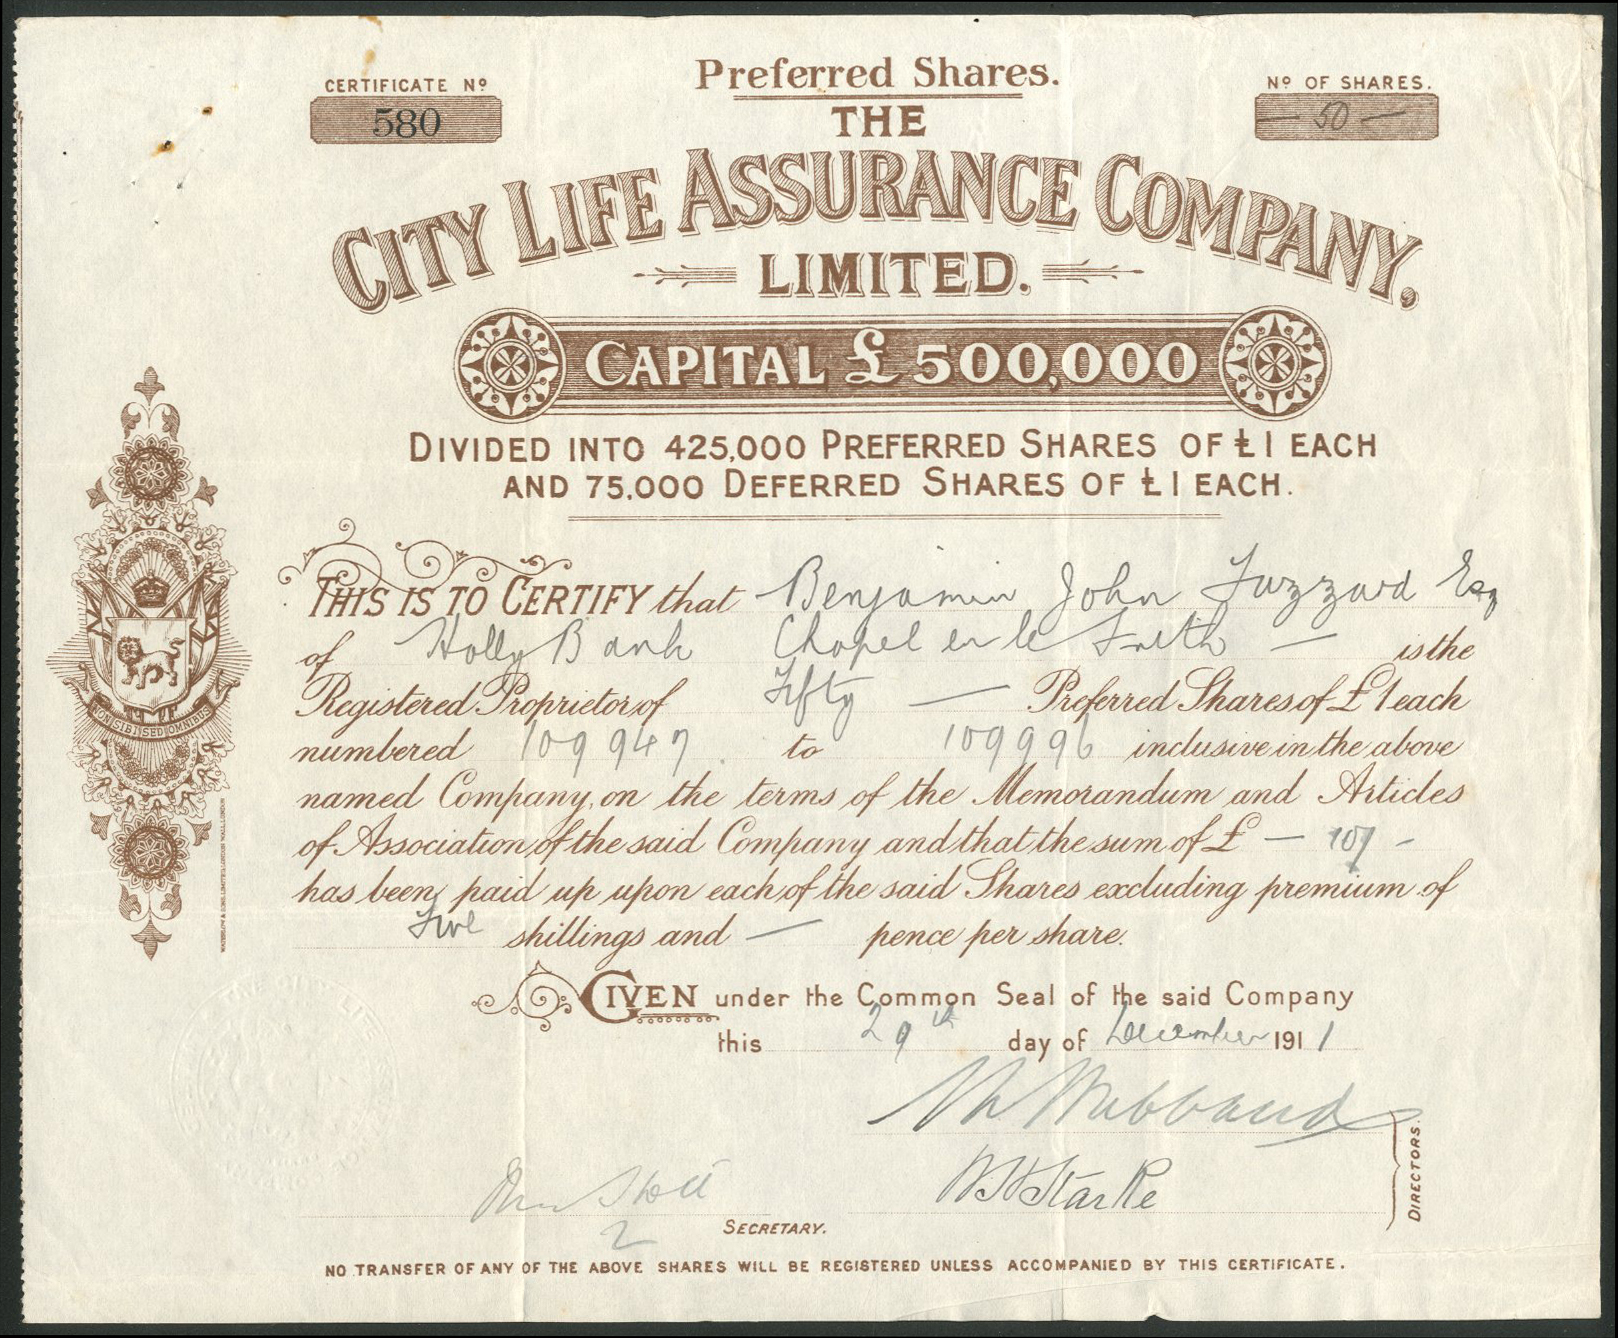 CERTIFICATE Nº
580
Preferred Shares.
Nº OF SHARES.
— 50 —
THE
CITY LIFE ASSURANCE COMPANY,
LIMITED.
CAPITAL £500,000
DIVIDED INTO 425,000 PREFERRED SHARES OF £1 EACH
AND 75,000 DEFERRED SHARES OF £1 EACH.
THIS IS TO CERTIFY that Benjamin John Fuzzard Esq
of Holly Bank Chapel en le Frith — is the
Registered Proprietor of Fifty — Preferred Shares of £1 each
numbered 109947 to 109996 inclusive in the above
named Company, on the terms of the Memorandum and Articles
of Association of the said Company and that the sum of £ — 10/ -
has been paid up upon each of the said Shares excluding premium of
Five shillings and — pence per share.
GIVEN under the Common Seal of the said Company
this 29th day of December 1911
NON SIBI SED OMNIBUS
WATERLOW & SONS LIMITED, LONDON WALL, LONDON
W H Starke
DIRECTORS.
SECRETARY.
NO TRANSFER OF ANY OF THE ABOVE SHARES WILL BE REGISTERED UNLESS ACCOMPANIED BY THIS CERTIFICATE.